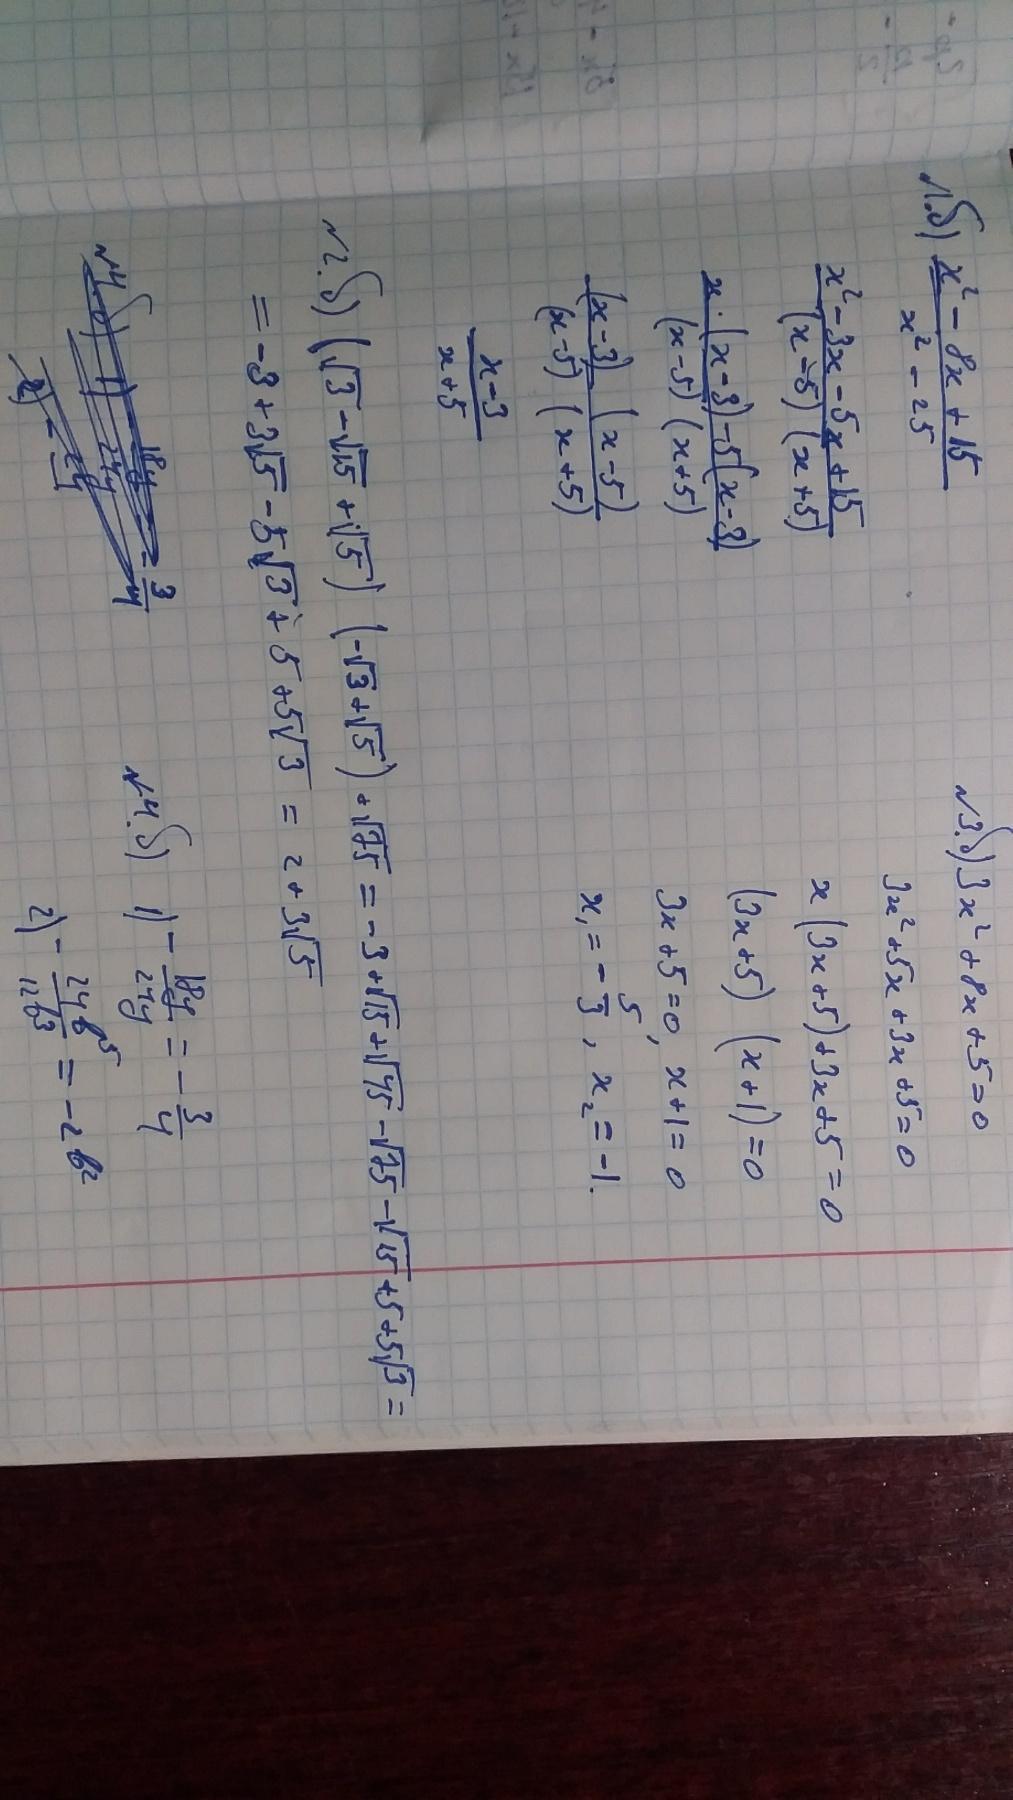 №1.б) (x² - 8x + 15)/(x² - 25)
(x² - 3x - 5x + 15)/((x-5)(x+5))
(x·(x-3) - 5(x-3))/((x-5)(x+5))
((x-3)(x-5))/((x-5)(x+5))
(x-3)/(x+5)
№2.б) (√3 - √15 + √5)(-√3 + √5) + √75 = -3 + √15 + √45 - √75 - √15 + 5 + 5√3 =
= -3 + 3√5 - 5√3 + 5 + 5√3 = 2 + 3√5
№3.б) 3x² + 8x + 5 = 0
3x² + 5x + 3x + 5 = 0
x(3x+5) + 3x + 5 = 0
(3x+5) (x+1) = 0
3x + 5 = 0, x + 1 = 0
x₁ = -5/3, x₂ = -1.
№4.б) 1) -18y/24y = -3/4
2) -24b⁵/12b³ = -2b²